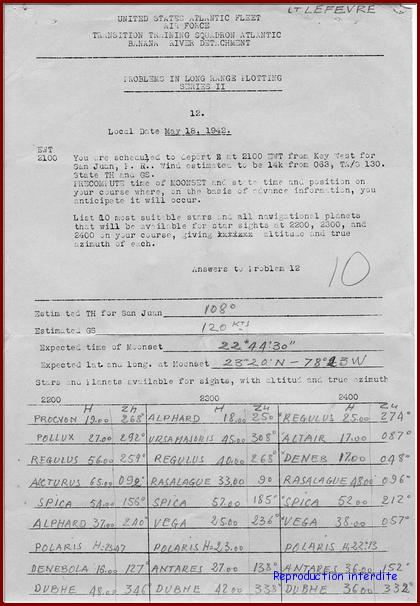 LT LEFEVRE
UNITED STATES ATLANTIC FLEET
AIR FORCE
TRANSITION TRAINING SQUADRON ATLANTIC
BANANA RIVER DETACHMENT
PROBLEMS IN LONG RANGE PLOTTING
SERIES II
12.
Local Date May 18, 1943.
EWT
2100 You are scheduled to depart E at 2100 EWT from Key West for
San Juan, P. R.. Wind estimated to be 14k from 063, TAS 130.
State TH and GS.
PRECOMPUTE time of MOONSET and state time and position on
your course where, on the basis of advance information, you
anticipate it will occur.
List 10 most suitable stars and all navigational planets
that will be available for star sights at 2200, 2300, and
2400 on your course, giving altitude and true
azimuth of each.
Answers to Problem 12
10
Estimated TH for San Juan 108°
Estimated GS 120 KTS
Expected time of Moonset 22°44'30"
Expected lat and long. at Moonset 23°20'N - 78° W
Stars and Planets available for sights, with altitud and true azimuth
2200 2300 2400
H Zn H Zn H Zn
PROCYON 19.00 268° ALPHARD 18.00 250° REGULUS 25.00 274°
POLLUX 27.00 292° URSA MAIORIS 45.00 308° ALTAIR 17.00 087°
REGULUS 56.00 259° REGULUS 40.00 268° DENEB 17.00 048°
ARCTURUS 65.00 092° RASALAGUE 33.00 90 RASALAGUE 48.00 096°
SPICA 54.00 156° SPICA 57.00 185° SPICA 52.00 212°
ALPHARD 37.00 240° VEGA 25.00 236° VEGA 38.00 057°
POLARIS H= POLARIS H=23.00 POLARIS H=
DENEBOLA 127° ANTARES 27.00 138° ANTARES 36.00 152°
DUBHE 48.00 346° DUBHE 42.00 333° DUBHE 36.00 332°
Reproduction interdite